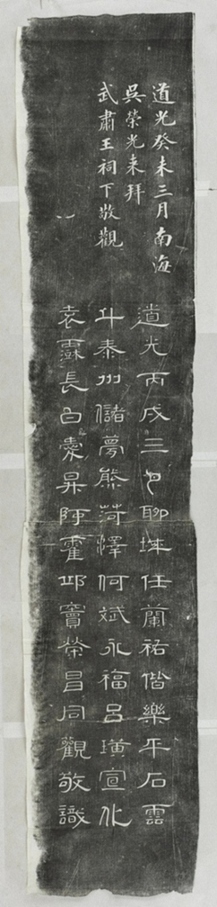 道光癸未三月南海
吳榮光来拜
武肅王祠下敬觀
道光丙戌三月聊城任蘭祐偕樂平石雲
斗泰州儲夢熊菏澤何斌永福呂璜宣化
袁長白昇阿霍邱竇榮昌同觀敬識